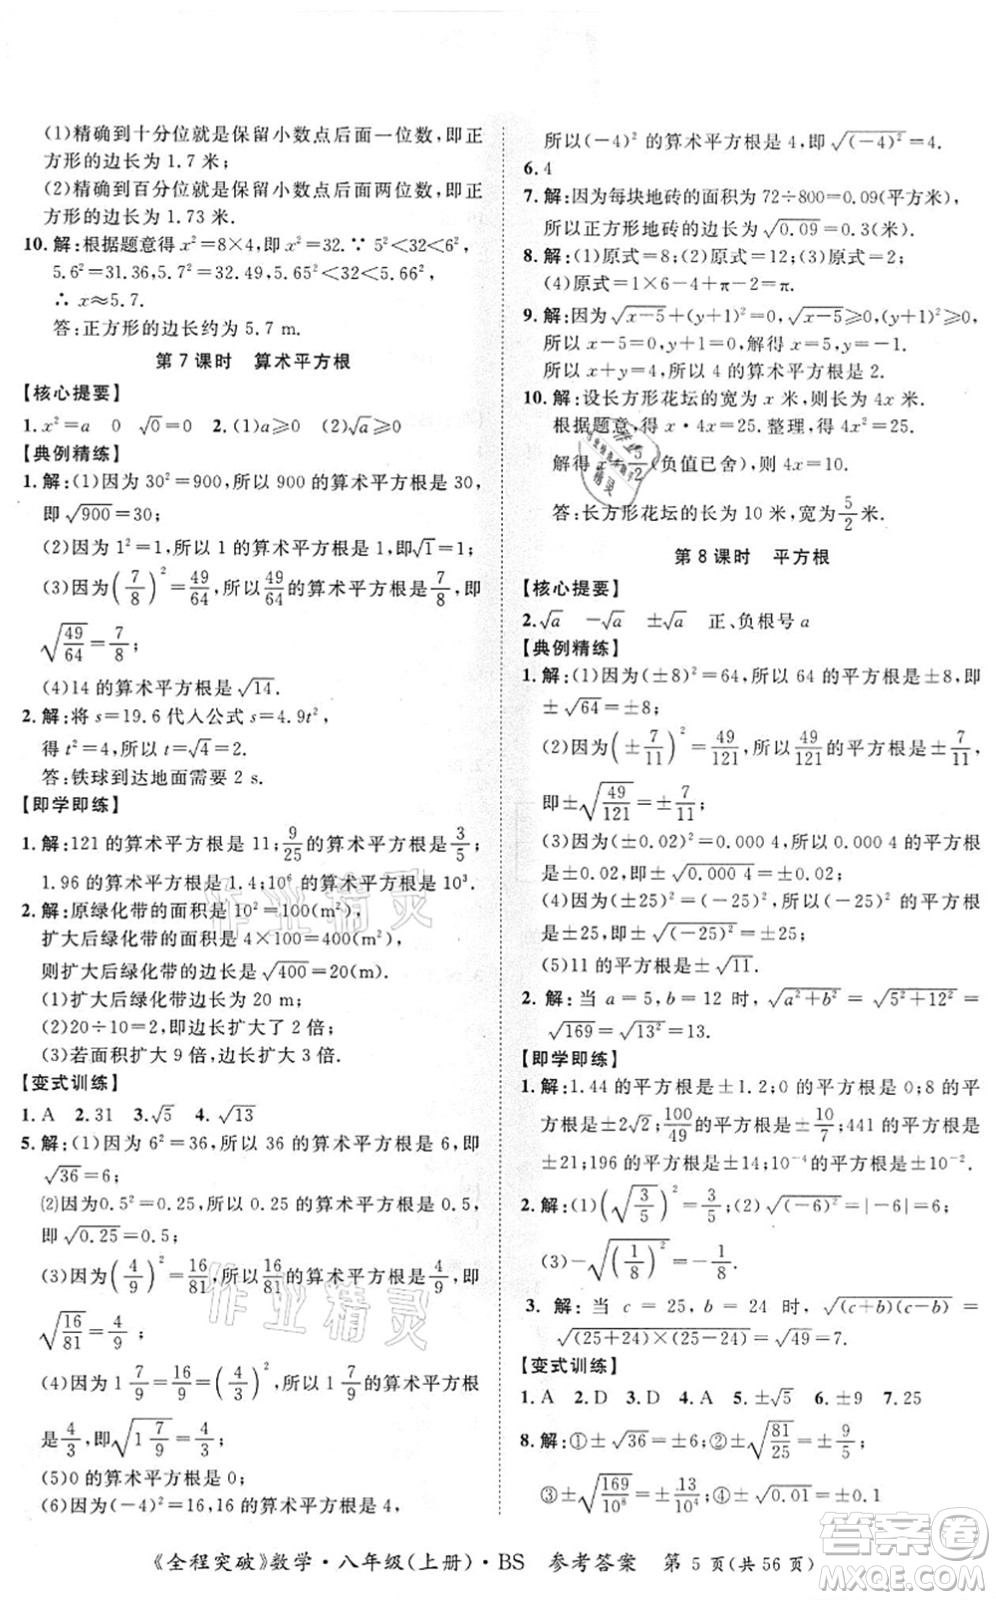 (1)精确到十分位就是保留小数点后面一位数,即正
方形的边长为 1.7 米;
(2)精确到百分位就是保留小数点后面两位数,即正
方形的边长为 1.73 米.
10. 解:根据题意得 x²=8×4,即 x²=32.∵ 5²<32<6²,
5.6²=31.36,5.7²=32.49,5.6²<32<5.66²,
∴ x≈5.7.
答:正方形的边长约为 5.7 m.
第 7 课时 算术平方根
【核心提要】
1. x²=a 0 √0=0 2. (1)a⩾0 (2)√a⩾0
【典例精练】
1. 解:(1)因为 30²=900,所以 900 的算术平方根是 30,
即√900=30;
(2)因为 1²=1,所以 1 的算术平方根是 1,即√1=1;
(3)因为(7/8)²=49/64,所以49/64的算术平方根是7/8,即
√(49/64)=7/8;
(4)14 的算术平方根是√14.
2. 解:将 s=19.6 代人公式 s=4.9t²,
得 t²=4,所以 t=√4=2.
答:铁球到达地面需要 2 s.
【即学即练】
1. 解:121 的算术平方根是 11;9/25的算术平方根是3/5;
1.96 的算术平方根是 1.4;10⁶ 的算术平方根是 10³.
2. 解:原绿化带的面积是 10²=100(m²),
扩大后绿化带的面积是 4×100=400(m²),
则扩大后绿化带的边长是√400=20(m).
(1)扩大后绿化带边长为 20 m;
(2)20÷10=2,即边长扩大了 2 倍;
(3)若面积扩大 9 倍,边长扩大 3 倍.
【变式训练】
1. A 2. 31 3. √5 4. √13
5. 解:(1)因为 6²=36,所以 36 的算术平方根是 6,即
√36=6;
(2)因为0.5²=0.25,所以 0.25 的算术平方根是 0.5,
即√0.25=0.5;
(3)因为(4/9)²=16/81,所以16/81的算术平方根是4/9,即
√(16/81)=4/9;
(4)因为 1 7/9=16/9=(4/3)²,所以 1 7/9的算术平方根
是4/3,即√(1 7/9)=4/3;
(5)0 的算术平方根是 0;
(6)因为(-4)²=16,16 的算术平方根是 4,
所以(-4)² 的算术平方根是 4,即√((-4)²)=4.
6. 4
7. 解:因为每块地砖的面积为 72÷800=0.09(平方米),
所以每块地砖的边长为√0.09=0.3(米).
8. 解:(1)原式=8;(2)原式=12;(3)原式=5/2;
(4)原式=1×6-4+π-2=π.
9. 解:因为√(x-5)+(y+1)²=0,√(x-5)⩾0,(y+1)²⩾0,
所以 x-5=0,y+1=0,解得 x=5,y=-1.
所以 x+y=4,所以 x+y 的算术平方根是 2.
10. 解:设长方形花坛的宽为 x 米,则长为 4x 米.
根据题意,得 x·4x=25.整理,得 4x²=25.
解得 x=5/2(负值已舍),则 4x=10.
答:长方形花坛的长为 10 米,宽为5/2米.
第 8 课时 平方根
【核心提要】
2. √a -√a ±√a 正、负根号 a
【典例精练】
1. 解:(1)因为(±8)²=64,所以 64 的平方根是±8,即
±√64=±8;
(2)因为(±7/11)²=49/121,所以49/121的平方根是±7/11,
即±√(49/121)=±7/11;
(3)因为(±0.02)²=0.000 4,所以 0.000 4 的平方根是
±0.02,即±√0.000 4=±0.02;
(4)因为(±25)²=(-25)²,所以(-25)² 的平方根是
±25,即±√((-25)²)=±25;
(5)11 的平方根是±√11.
2. 解:当 a=5,b=12 时,√(a²+b²)=√(5²+12²)=
√169=√(13²)=13.
【即学即练】
1. 解:1.44 的平方根是±1.2;0 的平方根是 0;8 的平方
根是±2√2;100/49的平方根是±10/7;441 的平方根是
±21;196 的平方根是±14;10⁻⁴ 的平方根是±10⁻².
2. 解:(1)(√(3/5))²=3/5;(2)√((-6)²)=|-6|=6;
(3)-√((1/8)²)=-1/8.
3. 解:当 c=25,b=24 时,√((c+b)(c-b))=
√((25+24)×(25-24))=√49=7.
【变式训练】
1. A 2. D 3. D 4. A 5. ±√5 6. ±9 7. 25
8. 解:①±√36=±6;②±√(81/25)=±9/5;
③±√(169/10⁸)=±13/10⁴;④±√0.01=±0.1
《全程突破》数学·八年级(上册)·BS 参考答案 第 5 页(共 56 页)
作业精灵
作业精灵